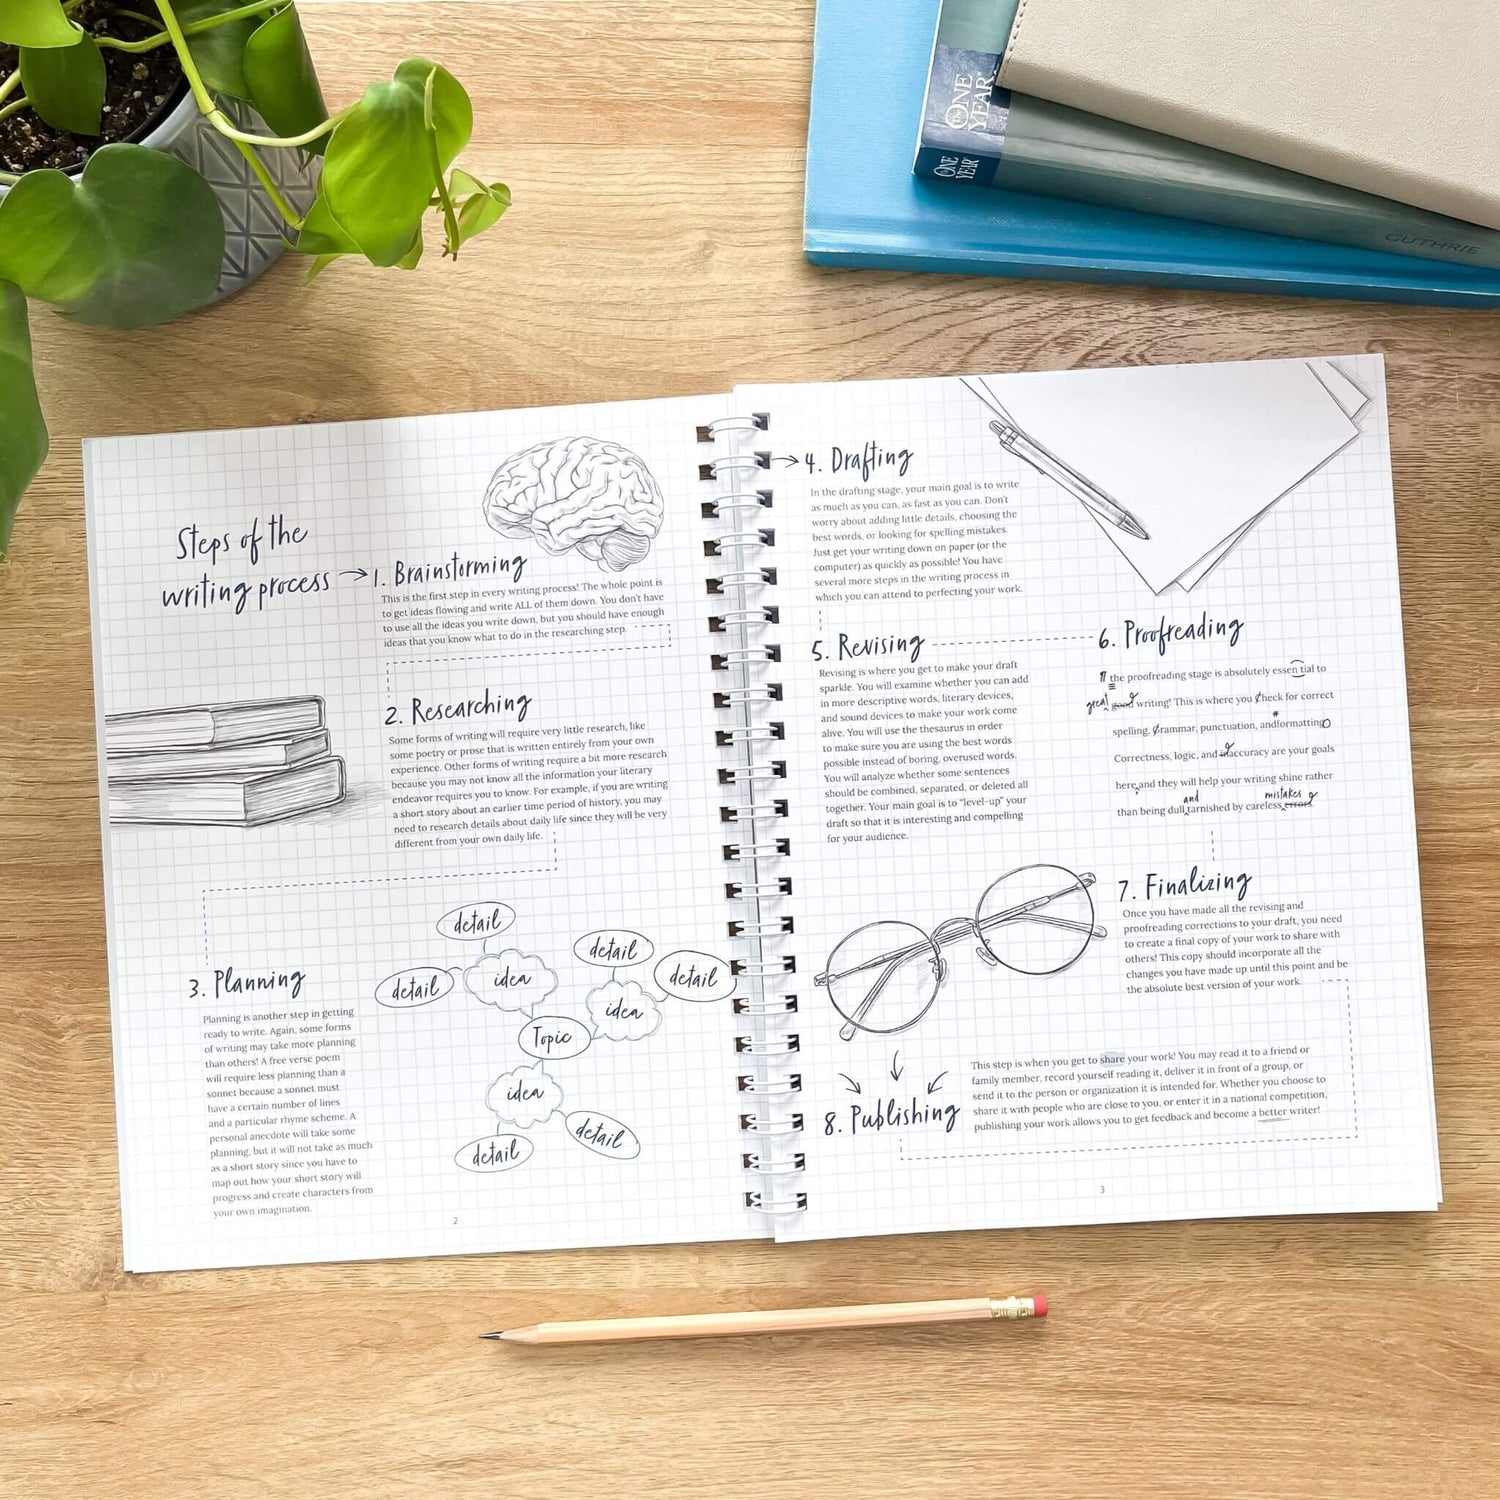 THE ONE YEAR
THE ONE YEAR
GUTHRIE
Steps of the
writing process
1. Brainstorming
This is the first step in every writing process! The whole point is
to get ideas flowing and write ALL of them down. You don't have
to use all the ideas you write down, but you should have enough
ideas that you know what to do in the researching step.
2. Researching
Some forms of writing will require very little research, like
some poetry or prose that is written entirely from your own
experience. Other forms of writing require a bit more research
because you may not know all the information your literary
endeavor requires you to know. For example, if you are writing
a short story about an earlier time period of history, you may
need to research details about daily life since they will be very
different from your own daily life.
3. Planning
Planning is another step in getting
ready to write. Again, some forms
of writing may take more planning
than others! A free verse poem
will require less planning than a
sonnet because a sonnet must
have a certain number of lines
and a particular rhyme scheme. A
personal anecdote will take some
planning, but it will not take as much
as a short story since you have to
map out how your short story will
progress and create characters from
your own imagination.
detail
detail
idea
detail
detail
idea
Topic
idea
detail
detail
2
4. Drafting
In the drafting stage, your main goal is to write
as much as you can, as fast as you can. Don't
worry about adding little details, choosing the
best words, or looking for spelling mistakes.
Just get your writing down on paper (or the
computer) as quickly as possible! You have
several more steps in the writing process in
which you can attend to perfecting your work.
5. Revising
Revising is where you get to make your draft
sparkle. You will examine whether you can add
in more descriptive words, literary devices,
and sound devices to make your work come
alive. You will use the thesaurus in order
to make sure you are using the best words
possible instead of boring, overused words.
You will analyze whether some sentences
should be combined, separated, or deleted all
together. Your main goal is to "level-up" your
draft so that it is interesting and compelling
for your audience.
6. Proofreading
¶ the proofreading stage is absolutely essen tial to
great
good writing! This is where you Check for correct
#
spelling, Grammar, punctuation, andformatting
Correctness, logic, and inaccuracy are your goals
here, and they will help your writing shine rather
and mistakes
than being dull tarnished by careless errors
7. Finalizing
Once you have made all the revising and
proofreading corrections to your draft, you need
to create a final copy of your work to share with
others! This copy should incorporate all the
changes you have made up until this point and be
the absolute best version of your work.
8. Publishing
This step is when you get to share your work! You may read it to a friend or
family member, record yourself reading it, deliver it in front of a group, or
send it to the person or organization it is intended for. Whether you choose to
share it with people who are close to you, or enter it in a national competition,
publishing your work allows you to get feedback and become a better writer!
3